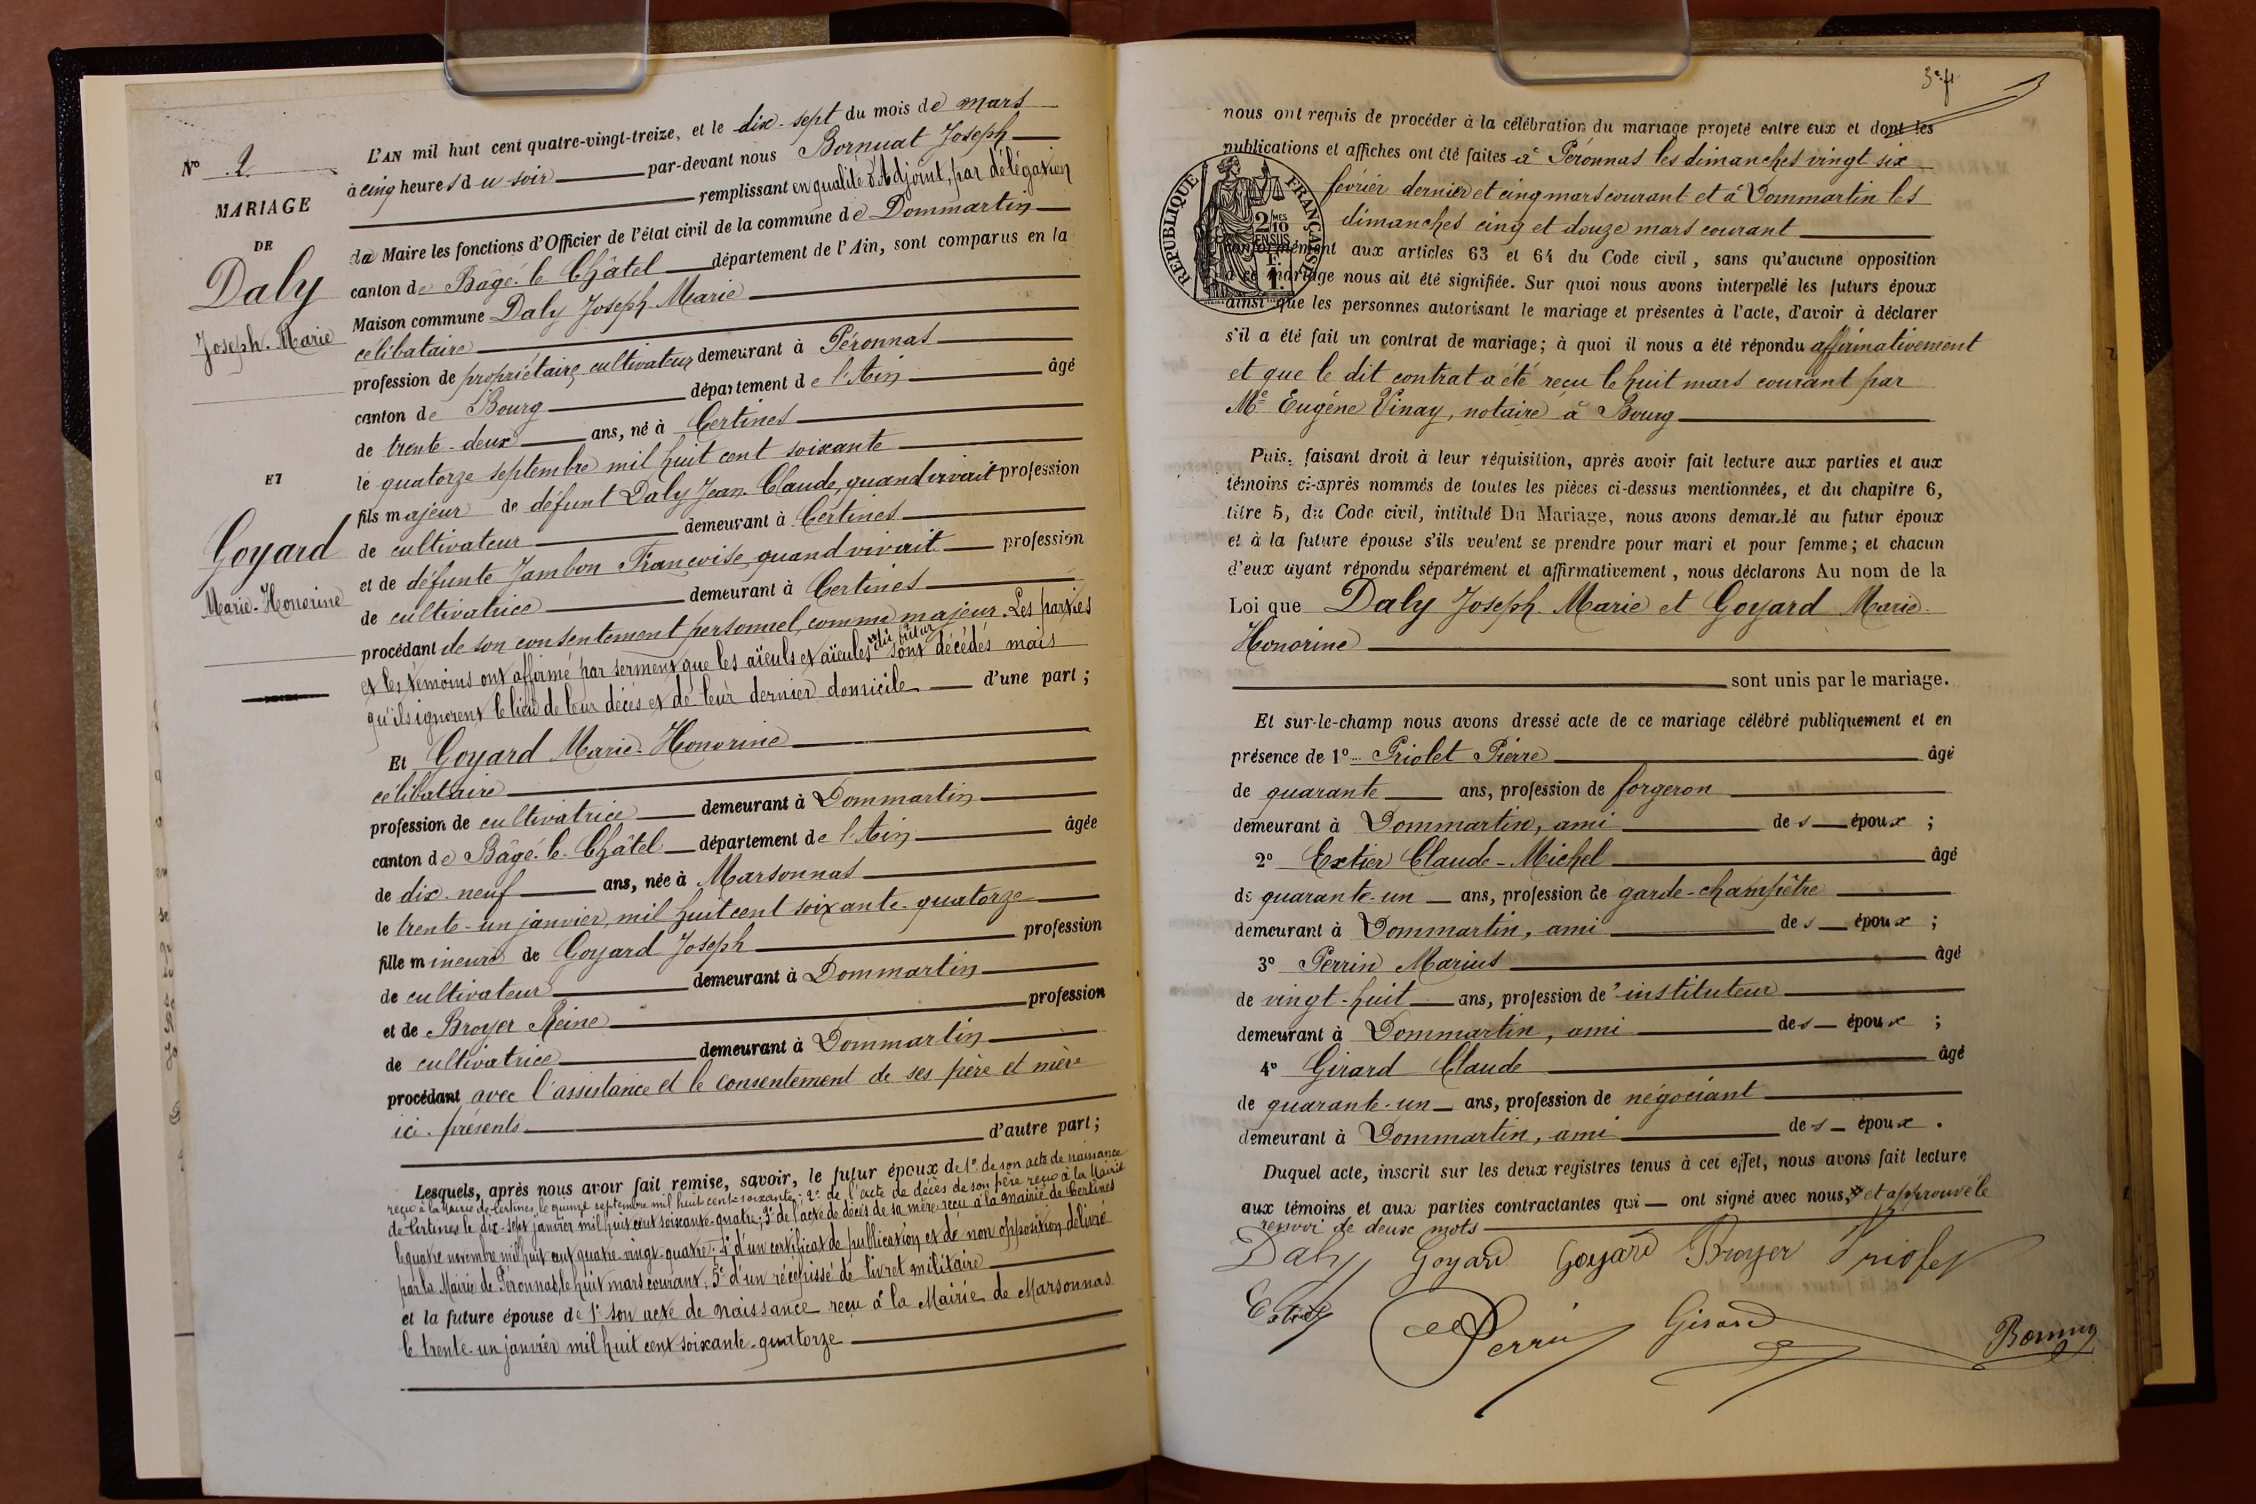 N° 2
MARIAGE
DE
Daly
Joseph-Marie
ET
Goyard
Marie-Honorine
L'AN mil huit cent quatre-vingt-treize, et le dix-sept du mois de mars
à cinq heures du soir par-devant nous Bornuat Joseph
remplissant en qualité d'Adjoint, par délégation
du Maire les fonctions d'Officier de l'état civil de la commune de Dommartin
canton de Bâgé-le-Châtel département de l'Ain, sont comparus en la
Maison commune Daly Joseph-Marie
célibataire
profession de propriétaire cultivateur demeurant à Péronnas
canton de Bourg département de l'Ain âgé
de trente-deux ans, né à Certines
le quatorze septembre mil huit cent soixante
fils majeur de défunt Daly Jean-Claude, quand vivait profession
de cultivateur demeurant à Certines
et de défunte Jambon Françoise, quand vivait profession
de cultivatrice demeurant à Certines
procédant de son consentement personnel, comme majeur. Les parties
et les témoins ont affirmé par serment que les aïeuls et aïeules du futur sont décédés mais
qu'ils ignorent le lieu de leur décès et de leur dernier domicile d'une part;
Et Goyard Marie-Honorine
célibataire
profession de cultivatrice demeurant à Dommartin
canton de Bâgé-le-Châtel département de l'Ain âgée
de dix-neuf ans, née à Marsonnas
le trente-un janvier, mil huit cent soixante-quatorze
fille mineure de Goyard Joseph profession
de cultivateur demeurant à Dommartin
et de Broyer Reine profession
de cultivatrice demeurant à Dommartin
procédant avec l'assistance et le consentement de ses père et mère
ici présents d'autre part;
Lesquels, après nous avoir fait remise, savoir, le futur époux de 1° de son acte de naissance
reçu à la Mairie de Certines, le quinze septembre mil huit cent soixante; 2° de l'acte de décès de son père reçu à la Mairie
de Certines le dix-sept janvier mil huit cent soixante-quatre; 3° de l'acte de décès de sa mère reçu à la Mairie de Certines
le quatre novembre mil huit cent quatre-vingt-quatre; 4° d'un certificat de publication et de non opposition délivré
par la Mairie de Péronnas le huit mars courant; 5° d'un récépissé de livret militaire
et la future épouse de 1° son acte de naissance reçu à la Mairie de Marsonnas
le trente-un janvier mil huit cent soixante-quatorze
nous ont requis de procéder à la célébration du mariage projeté entre eux et dont les
publications et affiches ont été faites à Péronnas les dimanches vingt six
février dernier et cinq mars courant et à Dommartin les
dimanches cinq et douze mars courant
REPUBLIQUE FRANÇAISE
2 MES
10
EN SUS
F.
1.
conformément aux articles 63 et 64 du Code civil, sans qu'aucune opposition
à ce mariage nous ait été signifiée. Sur quoi nous avons interpellé les futurs époux
ainsi que les personnes autorisant le mariage et présentes à l'acte, d'avoir à déclarer
s'il a été fait un contrat de mariage; à quoi il nous a été répondu affirmativement
et que le dit contrat a été reçu le huit mars courant par
Me Eugène Vinay, notaire à Bourg
Puis, faisant droit à leur réquisition, après avoir fait lecture aux parties et aux
témoins ci-après nommés de toutes les pièces ci-dessus mentionnées, et du chapitre 6,
titre 5, du Code civil, intitulé Du Mariage, nous avons demandé au futur époux
et à la future épouse s'ils veulent se prendre pour mari et pour femme; et chacun
d'eux ayant répondu séparément et affirmativement, nous déclarons Au nom de la
Loi que Daly Joseph-Marie et Goyard Marie-
Honorine
sont unis par le mariage.
Et sur-le-champ nous avons dressé acte de ce mariage célébré publiquement et en
présence de 1° Priolet Pierre âgé
de quarante ans, profession de forgeron
demeurant à Dommartin, ami des époux;
2° Extier Claude-Michel âgé
de quarante-un ans, profession de garde-champêtre
demeurant à Dommartin, ami des époux;
3° Perrin Marius âgé
de vingt-huit ans, profession de instituteur
demeurant à Dommartin, ami des époux;
4° Girard Claude âgé
de quarante-un ans, profession de négociant
demeurant à Dommartin, ami des époux.
Duquel acte, inscrit sur les deux registres tenus à cet effet, nous avons fait lecture
aux témoins et aux parties contractantes qui ont signé avec nous, et approuvé le
renvoi de deux mots
Daly Goyard Goyard Broyer Priolet
Extier Perrin Girard Bornuat